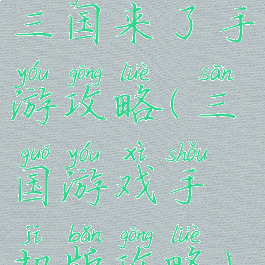 三国来了手
yóu gōng lüè sān
游攻略(三
guó yóu xì shǒu
国游戏手
jī bǎn gōng lüè
机版攻略)